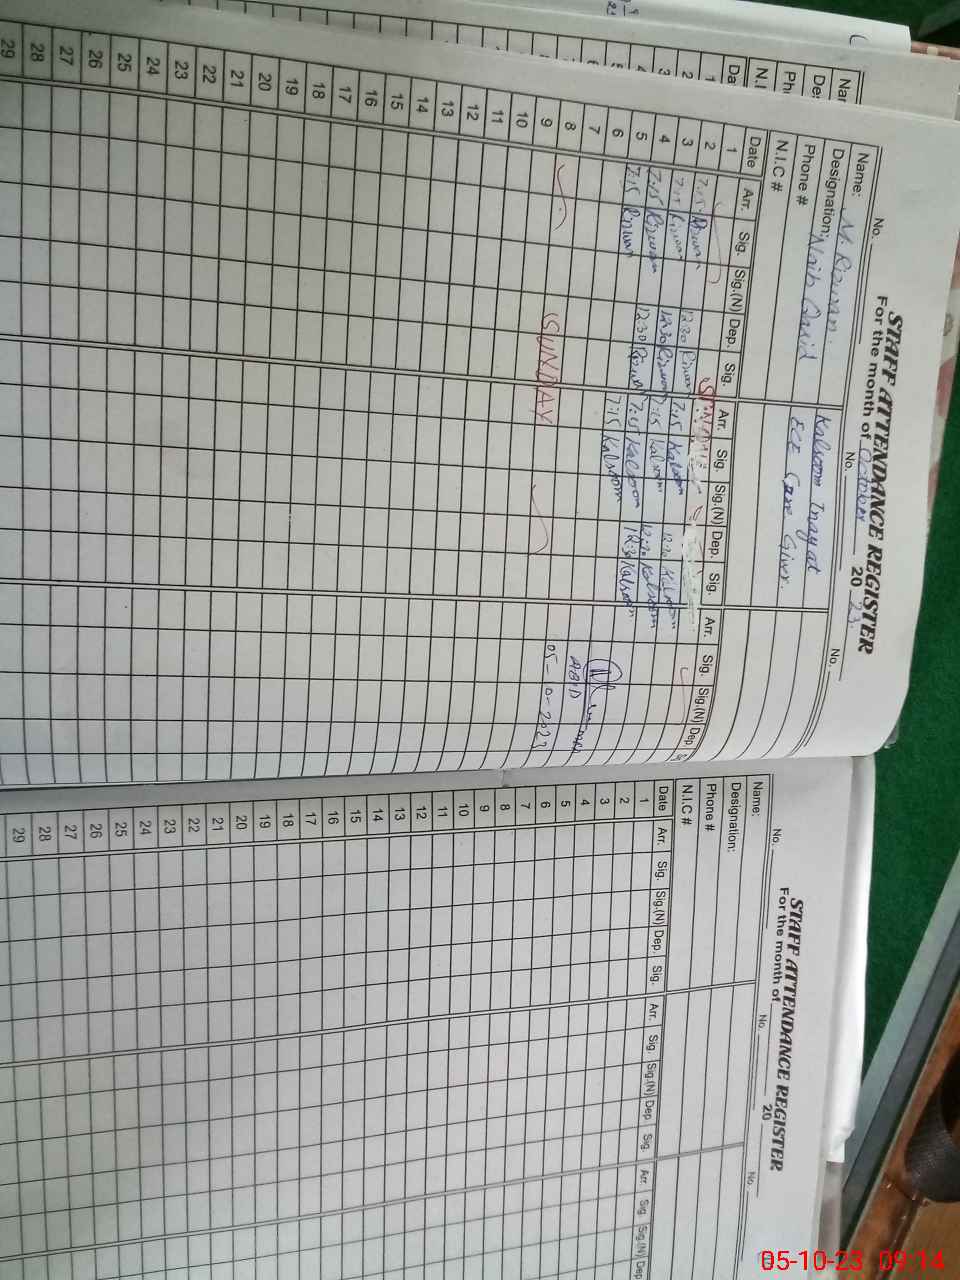 STAFF ATTENDANCE REGISTER
For the month of October 20 23.
No. No. No.
Name: M. Rizwan. Kalsoom Inayat
Designation: Naib Qasid ECE Care Giver.
Phone #
N.I.C #
Date Arr. Sig. Sig.(N) Dep. Sig. Arr. Sig. Sig.(N) Dep. Sig. Arr. Sig. Sig.(N) Dep
1 SUNDAY
2 7:15 Rizwan
3 7:15 Rizwan 12:30 Rizwan 7:15 Kalsoom 12:30 Kalsoom
4 7:15 Rizwan 12:30 Rizwan 7:15 Kalsoom 12:30 Kalsoom
5 7:15 Rizwan 12:30 Rizwan 7:15 Kalsoom 12:30 Kalsoom
6 7:15 Kalsoom
7
8 SUNDAY ABID
9 05-10-2023
10
11
12
13
14
15
16
17
18
19
20
21
22
23
24
25
26
27
28
29
STAFF ATTENDANCE REGISTER
For the month of 20
No. No. No.
Name:
Designation:
Phone #
N.I.C #
Date Arr. Sig. Sig.(N) Dep. Sig. Arr. Sig. Sig.(N) Dep Sig. Arr. Sig. Sig.(N) Dep
1
2
3
4
5
6
7
8
9
10
11
12
13
14
15
16
17
18
19
20
21
22
23
24
25
26
27
28
29
05-10-23 09:14